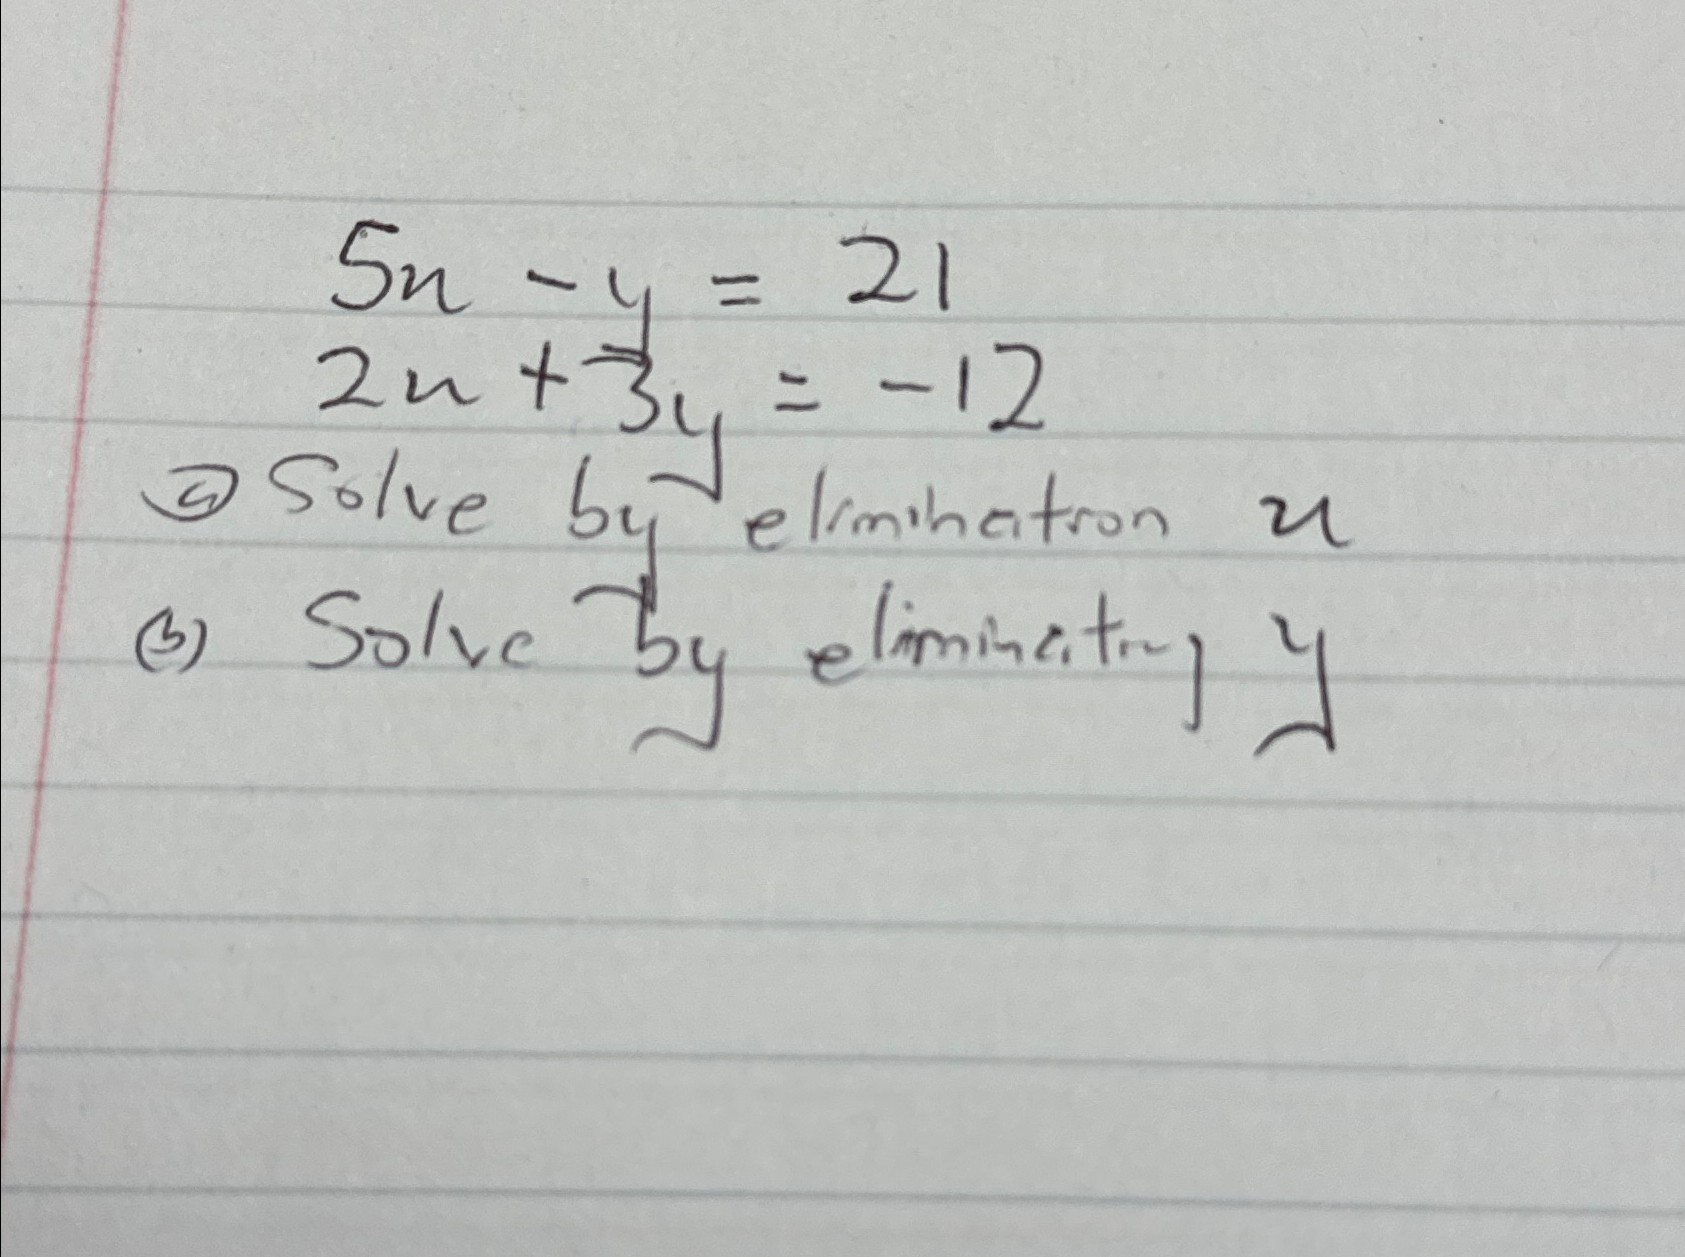 5x - y = 21
2x + 3y = -12
(a) Solve by elimination x
(b) Solve by eliminating y